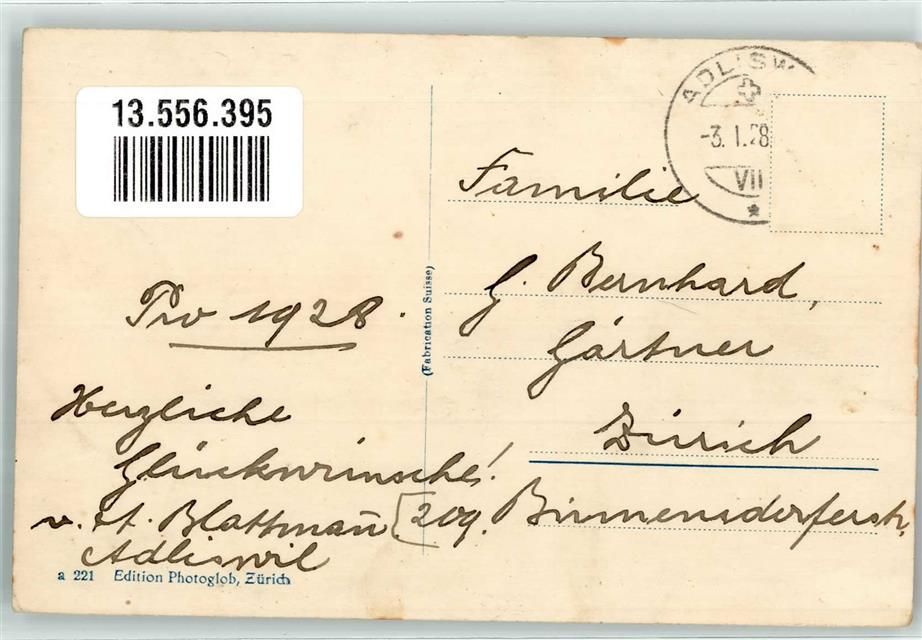 13.556.395
ADLISW
-3. I. 28
VII
Pro 1928.
Herzliche
Glückwünsche!
v. A. Blattmañ
Adliswil
a 221 Edition Photoglob, Zürich
(Fabrication Suisse)
Familie
G. Bernhard,
Gärtner
Zürich
[209. Birmensdorferstr.